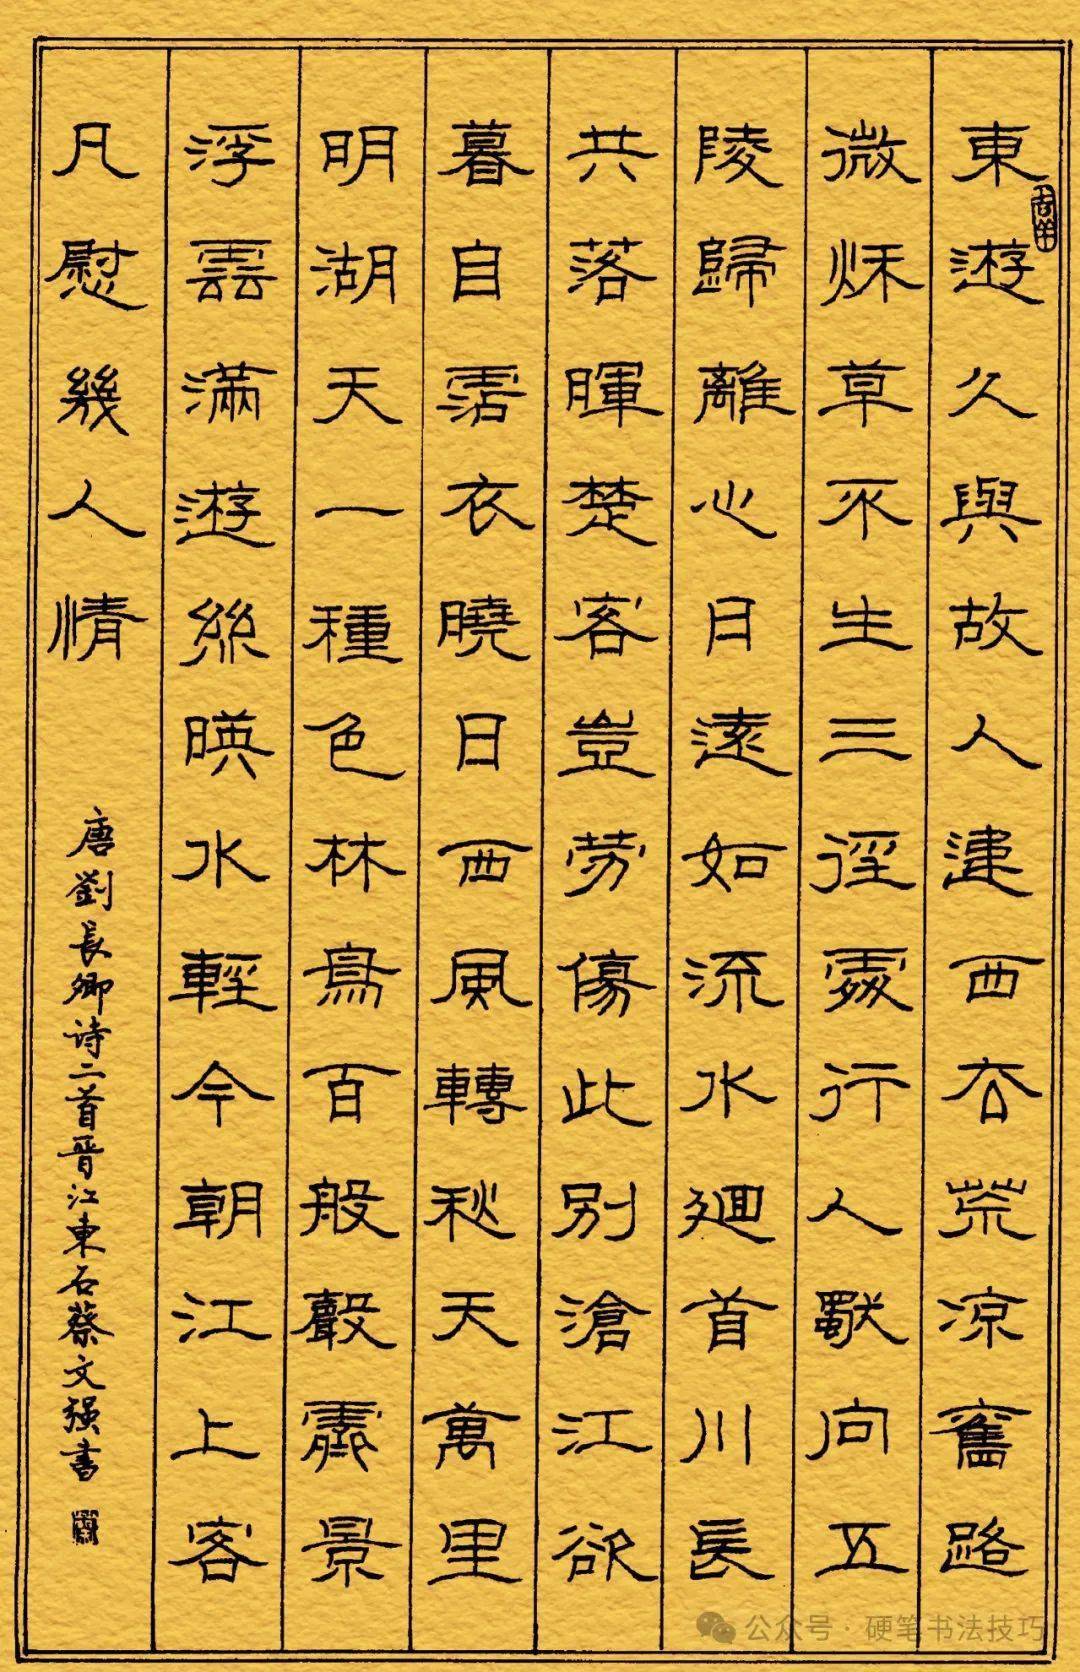 東遊久與故人違西去荒涼舊路
微秌草不生三徑處行人獨向五
陵歸離心日遠如流水廻首川長
共落暉楚客豈勞傷此別滄江欲
暮自霑衣曉日西風轉秋天萬里
明湖天一種色林鳥百般聲霽景
浮雲滿遊絲暎水輕今朝江上客
凡慰幾人情
唐劉長卿诗二首晋江東石蔡文強書
公众号 · 硬笔书法技巧